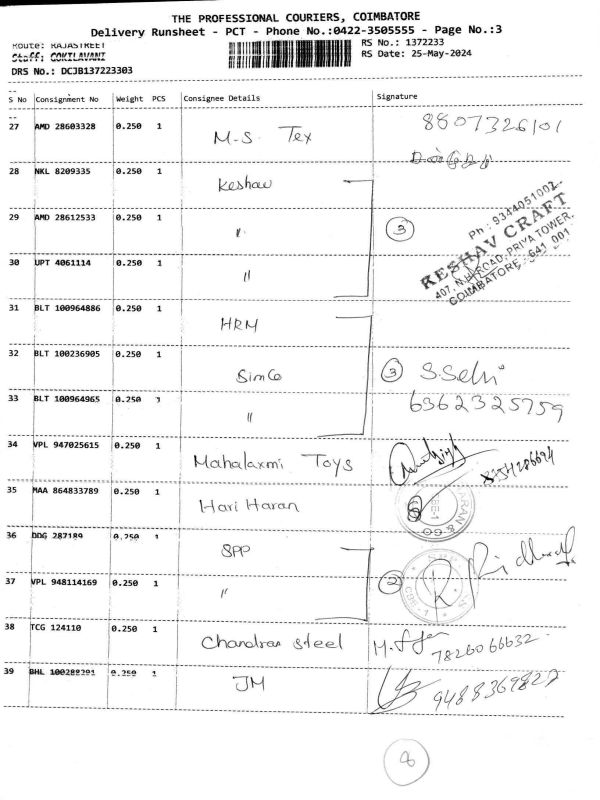 THE PROFESSIONAL COURIERS, COIMBATORE
Delivery Runsheet - PCT - Phone No.:0422-3505555 - Page No.:3
Route: RAJASTREET
RS No.: 1372233
Staff: GOKILAVANI
RS Date: 25-May-2024
DRS No.: DCJB137223303
S No Consignment No Weight PCS Consignee Details Signature
27 AMD 28603328 0.250 1 M-S. Tex 8807326101
28 NKL 8209335 0.250 1 Keshav
29 AMD 28612533 0.250 1 〃 3
Ph : 9344051002
KESHAV CRAFT
407, N.H. ROAD, PRIYA TOWER,
COIMBATORE - 641 001
30 UPT 4061114 0.250 1 〃
31 BLT 100964886 0.250 1 HRM
32 BLT 100236905 0.250 1 Simco 3 S.Selvi
33 BLT 100964965 0.250 1 〃 6362325759
34 VPL 947025615 0.250 1 Mahalaxmi Toys
35 MAA 864833789 0.250 1 Hari Haran
36 DDG 287189 0.250 1 SPP
37 VPL 948114169 0.250 1 〃 2
38 TCG 124110 0.250 1 Chandran steel 7826066632
39 BHL 100288291 0.250 1 JM 9488369827
8